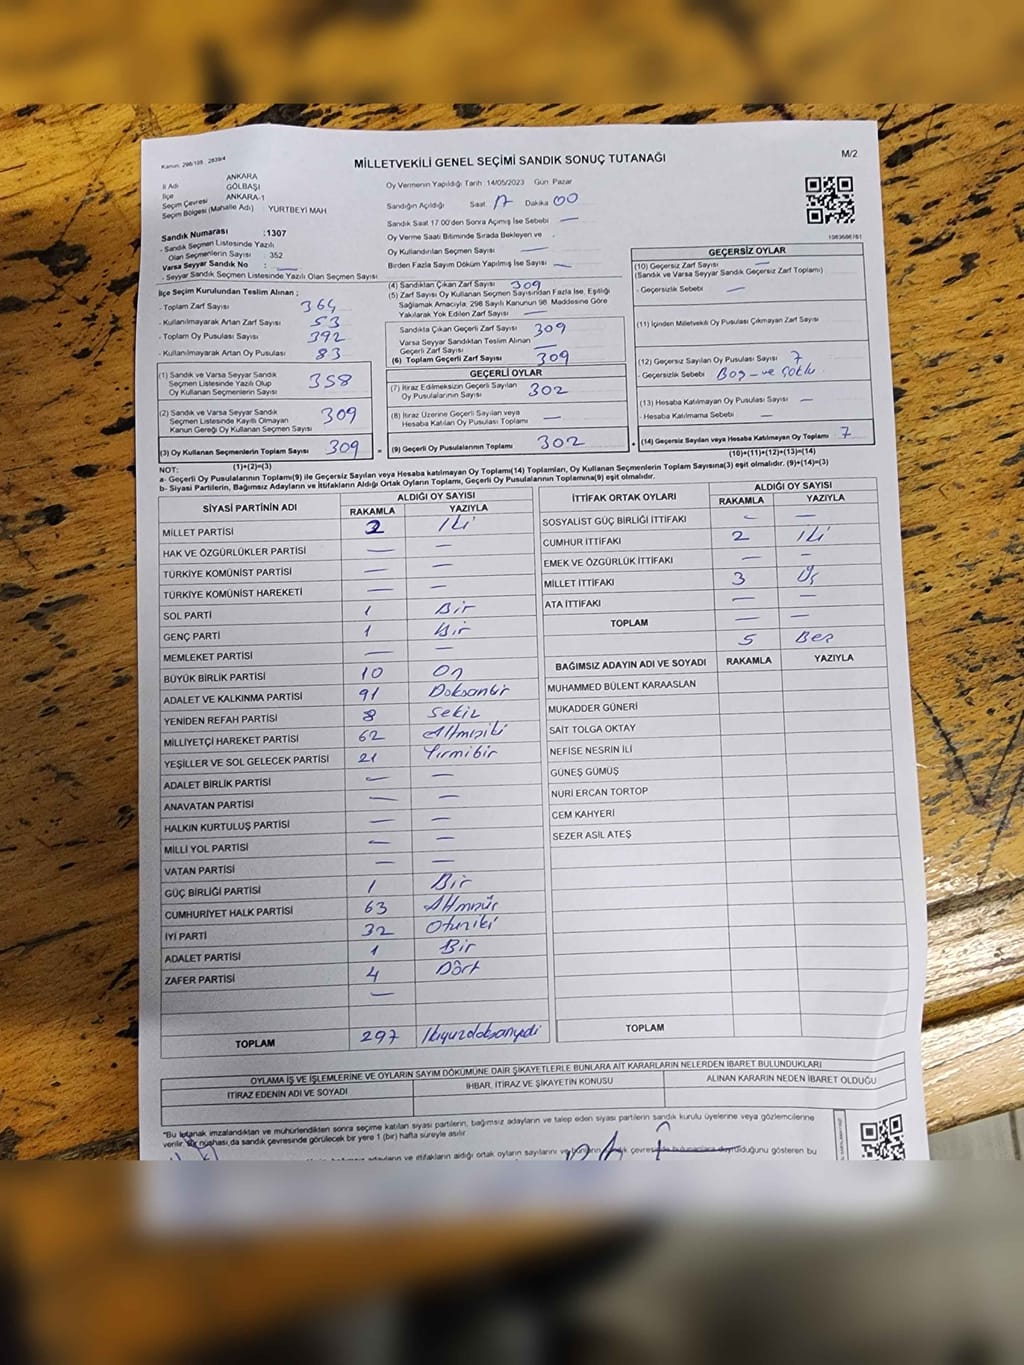 Kanun: 298/105 ; 2839/4
MİLLETVEKİLİ GENEL SEÇİMİ SANDIK SONUÇ TUTANAĞI
M/2
İl Adı ANKARA
İlçe GÖLBAŞI
Seçim Çevresi ANKARA-1
Seçim Bölgesi (Mahalle Adı) : YURTBEYİ MAH
Oy Vermenin Yapıldığı Tarih :14/05/2023 Gün Pazar
Sandığın Açıldığı Saat 17 Dakika 00
Sandık Saat 17.00'den Sonra Açımış İse Sebebi —
Oy Verme Saati Bitiminde Sırada Bekleyen ve
Oy Kullandırılan Seçmen Sayısı —
Birden Fazla Sayım Döküm Yapılmış İse Sayısı —
Sandık Numarası :1307
- Sandık Seçmen Listesinde Yazılı
Olan Seçmenlerin Sayısı : 352
Varsa Seyyar Sandık No : —
- Seyyar Sandık Seçmen Listesinde Yazılı Olan Seçmen Sayısı
İlçe Seçim Kurulundan Teslim Alınan ;
- Toplam Zarf Sayısı 364
- Kullanılmayarak Artan Zarf Sayısı 53
- Toplam Oy Pusulası Sayısı 392
- Kullanılmayarak Artan Oy Pusulası 83
(1) Sandık ve Varsa Seyyar Sandık
Seçmen Listesinde Yazılı Olup
Oy Kullanan Seçmenlerin Sayısı 358
(2) Sandık ve Varsa Seyyar Sandık
Seçmen Listesinde Kayıtlı Olmayan
Kanun Gereği Oy Kullanan Seçmen Sayısı 309
(3) Oy Kullanan Seçmenlerin Toplam Sayısı 309
(1)+(2)=(3)
(4) Sandıktan Çıkan Zarf Sayısı 309
(5) Zarf Sayısı Oy Kullanan Seçmen Sayısından Fazla İse, Eşitliği
Sağlamak Amacıyla, 298 Sayılı Kanunun 98. Maddesine Göre
Yakılarak Yok Edilen Zarf Sayısı —
Sandıkta Çıkan Geçerli Zarf Sayısı 309
Varsa Seyyar Sandıktan Teslim Alınan
Geçerli Zarf Sayısı —
(6) Toplam Geçerli Zarf Sayısı 309
GEÇERLİ OYLAR
(7) İtiraz Edilmeksizin Geçerli Sayılan
Oy Pusulalarının Sayısı 302
(8) İtiraz Üzerine Geçerli Sayılan veya
Hesaba Katılan Oy Pusulası Toplamı —
= (9) Geçerli Oy Pusulalarının Toplamı 302
GEÇERSİZ OYLAR
(10) Geçersiz Zarf Sayısı —
(Sandık ve Varsa Seyyar Sandık Geçersiz Zarf Toplamı)
- Geçersizlik Sebebi —
(11) İçinden Milletvekili Oy Pusulası Çıkmayan Zarf Sayısı
(12) Geçersiz Sayılan Oy Pusulası Sayısı 7
- Geçersizlik Sebebi Boş - ve Çoklu
(13) Hesaba Katılmayan Oy Pusulası Sayısı —
- Hesaba Katılmama Sebebi —
+ (14) Geçersiz Sayılan veya Hesaba Katılmayan Oy Toplamı 7
(10)+(11)+(12)+(13)=(14)
NOT:
a- Geçerli Oy Pusulalarının Toplamı(9) ile Geçersiz Sayılan veya Hesaba katılmayan Oy Toplamı(14) Toplamları, Oy Kullanan Seçmenlerin Toplam Sayısına(3) eşit olmalıdır. (9)+(14)=(3)
b- Siyasi Partilerin, Bağımsız Adayların ve İttifakların Aldığı Ortak Oyların Toplamı, Geçerli Oy Pusulalarının Toplamına(9) eşit olmalıdır.
SİYASİ PARTİNİN ADI ALDIĞI OY SAYISI
RAKAMLA YAZIYLA
MİLLET PARTİSİ 2 İki
HAK VE ÖZGÜRLÜKLER PARTİSİ — —
TÜRKİYE KOMÜNİST PARTİSİ — —
TÜRKİYE KOMÜNİST HAREKETİ — —
SOL PARTİ 1 Bir
GENÇ PARTİ 1 Bir
MEMLEKET PARTİSİ — —
BÜYÜK BİRLİK PARTİSİ 10 On
ADALET VE KALKINMA PARTİSİ 91 Doksanbir
YENİDEN REFAH PARTİSİ 8 Sekiz
MİLLİYETÇİ HAREKET PARTİSİ 62 Altmışiki
YEŞİLLER VE SOL GELECEK PARTİSİ 21 Yirmibir
ADALET BİRLİK PARTİSİ — —
ANAVATAN PARTİSİ — —
HALKIN KURTULUŞ PARTİSİ — —
MİLLİ YOL PARTİSİ — —
VATAN PARTİSİ — —
GÜÇ BİRLİĞİ PARTİSİ 1 Bir
CUMHURİYET HALK PARTİSİ 63 Altmışüç
İYİ PARTİ 32 Otuziki
ADALET PARTİSİ 1 Bir
ZAFER PARTİSİ 4 Dört
—
TOPLAM 297 İkiyüzdoksanyedi
İTTİFAK ORTAK OYLARI ALDIĞI OY SAYISI
RAKAMLA YAZIYLA
SOSYALİST GÜÇ BİRLİĞİ İTTİFAKI — —
CUMHUR İTTİFAKI 2 İki
EMEK VE ÖZGÜRLÜK İTTİFAKI — —
MİLLET İTTİFAKI 3 Üç
ATA İTTİFAKI — —
TOPLAM — —
5 Beş
BAĞIMSIZ ADAYIN ADI VE SOYADI RAKAMLA YAZIYLA
MUHAMMED BÜLENT KARAASLAN
MUKADDER GÜNERİ
SAİT TOLGA OKTAY
NEFİSE NESRİN İLİ
GÜNEŞ GÜMÜŞ
NURİ ERCAN TORTOP
CEM KAHYERİ
SEZER ASİL ATEŞ
TOPLAM
OYLAMA İŞ VE İŞLEMLERİNE VE OYLARIN SAYIM DÖKÜMÜNE DAİR ŞİKAYETLERLE BUNLARA AİT KARARLARIN NELERDEN İBARET BULUNDUKLARI
İTİRAZ EDENİN ADI VE SOYADI İHBAR, İTİRAZ VE ŞİKAYETİN KONUSU ALINAN KARARIN NEDEN İBARET OLDUĞU
"Bu tutanak imzalandıktan ve mühürlendikten sonra seçime katılan siyasi partilerin, bağımsız adayların ve talep eden siyasi partilerin sandık kurulu üyelerine veya gözlemcilerine
verilir. Bir nüshası,da sandık çevresinde görülecek bir yere 1 (bir) hafta süreyle asılır.
bağımsız adayların ve ittifakların aldığı ortak oyların sayılarını ve bunların sandık çevresinde bulunanlara duyrulduğunu gösteren bu